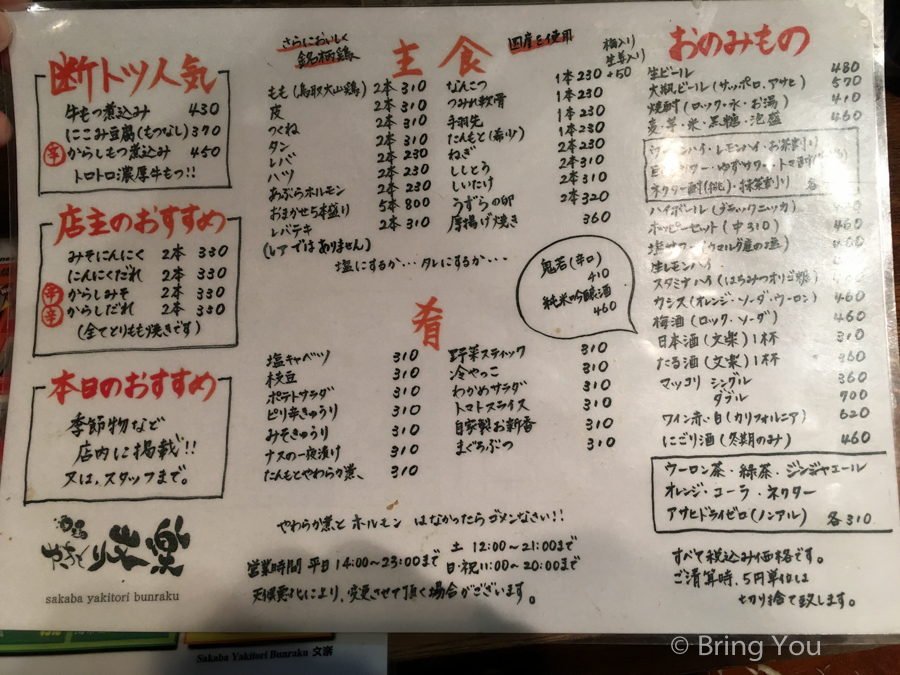 断トツ人気
牛もつ煮込み 430
にこみ豆腐(もつなし) 370
辛 からしもつ煮込み 450
トロトロ濃厚牛もつ!!
店主のおすすめ
みそにんにく 2本 330
にんにくだれ 2本 330
辛 からしみそ 2本 330
辛 からしだれ 2本 330
(全てとりもも焼きです)
本日のおすすめ
季節物など
店内に掲載!!
又は、スタッフまで。
sakaba yakitori bunraku
さらにおいしく
銘柄鶏
主食
国産を使用
梅入り
+50
もも(鳥取大山鶏) 2本 310
皮 2本 310
つくね 2本 310
タン 2本 310
レバ 2本 230
ハツ 2本 230
あぶらホルモン 2本 310
おまかせ5本盛り 5本 800
レバテキ 2本 310
(レアではありません)
なんこつ 1本 230
つみれ軟骨 1本 230
手羽先 1本 230
たんもと(希少) 1本 230
ねぎ 2本 230
ししとう 2本 310
しいたけ 2本 310
うずらの卵 2本 320
厚揚げ焼き 360
塩にするか・・・タレにするか・・・
鬼若(辛口)
410
純米吟醸酒
460
肴
塩キャベツ 310
枝豆 310
ポテトサラダ 310
ピリ辛きゅうり 310
みそきゅうり 310
ナスの一夜漬け 310
たんもとやわらか煮、 310
野菜スティック 310
冷やっこ 310
わかめサラダ 310
トマトスライス 310
自家製お新香 310
まぐろぶつ 310
やわらか煮とホルモン はなかったらゴメンなさい!!
営業時間 平日 14:00～23:00まで
土 12:00～21:00まで
日・祝 11:00～20:00まで
天候悪化により、変更させて頂く場合がございます。
おのみもの
生ビール 480
大瓶ビール(サッポロ、アサヒ) 570
焼酎(ロック・水・お湯) 410
麦・芋・米・黒糖・泡盛 460
ウーロンハイ・レモンハイ・お茶割り
ネクター酎(桃)・抹茶割り 各
ハイボール(ブラックニッカ)
ホッピーセット(中310) 460
生レモンハイ
スタミナハイ(はちみつオリゴ糖) 460
カシス(オレンジ・ソーダ・ウーロン) 460
梅酒(ロック・ソーダ) 460
日本酒(文楽)1杯 310
たる酒(文楽)1杯 460
マッコリ シングル 360
ダブル 700
ワイン赤・白(カリフォルニア) 620
にごり酒(冬期のみ) 460
ウーロン茶・緑茶・ジンジャエール
オレンジ・コーラ・ネクター
アサヒドライゼロ(ノンアル) 各310
すべて税込み価格です。
ご清算時、5円単位は
切り捨て致します。
Sakaba Yakitori Bunraku 文楽
© Bring You